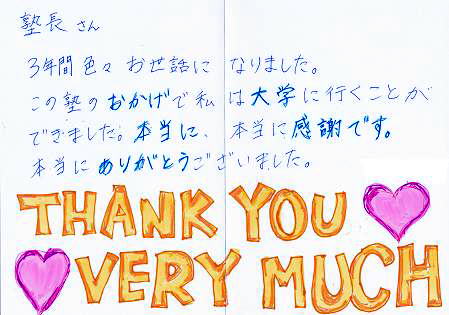 塾長 さん
3年間色々お世話になりました。
この塾のおかげで私は大学に行くことが
できました。本当に、本当に感謝です。
本当にありがとうございました。
THANK YOU
VERY MUCH